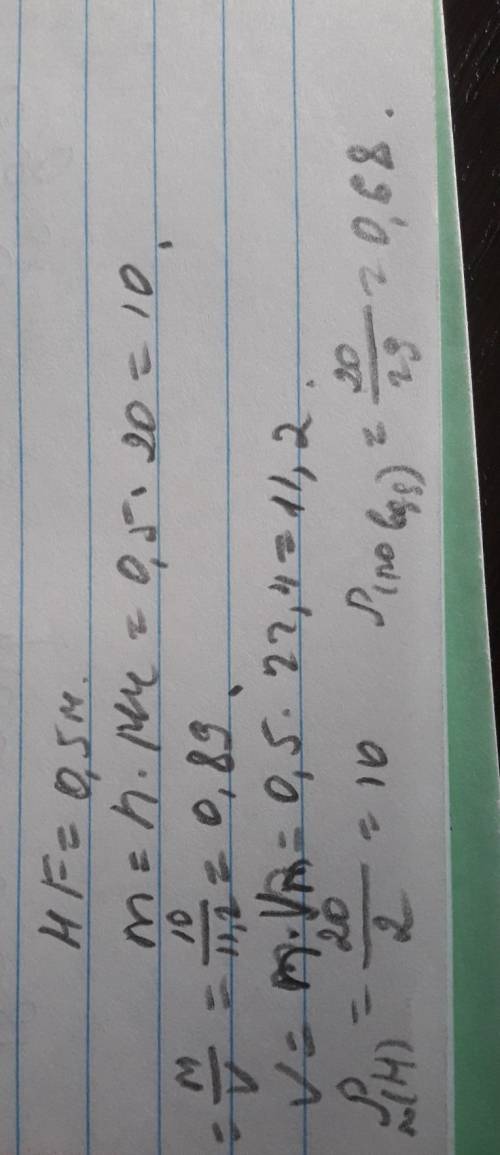 HF = 0,5м.
m = n · Mr = 0,5 · 20 = 10.
= m/V = 10/11,2 = 0,89.
V = m · Vm = 0,5 · 22,4 = 11,2.
P по(H) = 20/2 = 10 P(по возд) = 20/29 = 0,68.